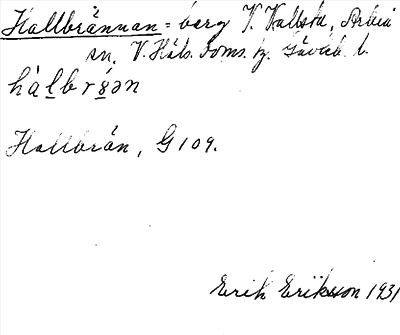 Hallbrännan = berg V. Vallsta, Arbrå
sn, V. Häls. Doms. h. Gävleb. l.
hàlbrs̱ən
Hallbrån, G 109.
Erik Eriksson 1931